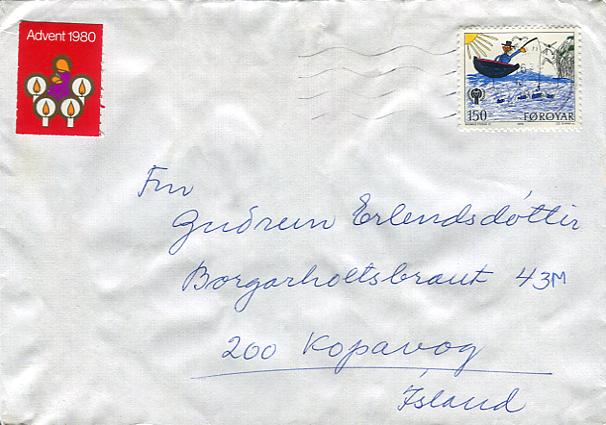 Advent 1980
150 FØROYAR
Frú
Guðrún Erlendsdóttir
Borgarholtsbraut 43M
200 Kopavog
Ísland